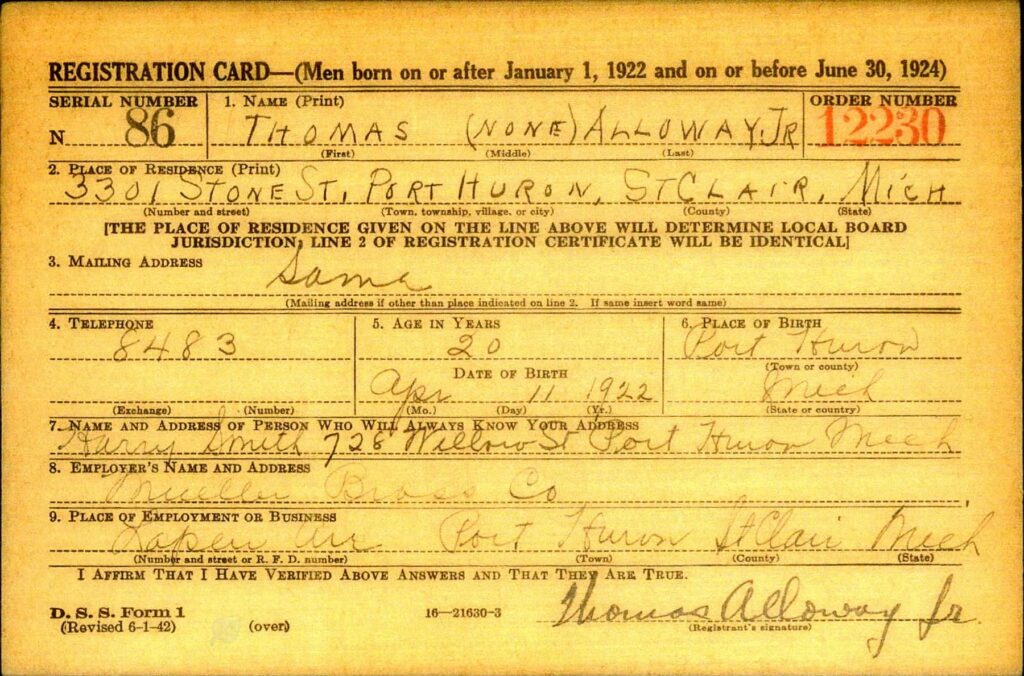 REGISTRATION CARD—(Men born on or after January 1, 1922 and on or before June 30, 1924)
SERIAL NUMBER 1. NAME (Print) ORDER NUMBER
N 86 THOMAS (NONE) ALLOWAY, JR 12230
(First) (Middle) (Last)
2. PLACE OF RESIDENCE (Print)
3301 STONE ST, PORT HURON, ST CLAIR, MICH
(Number and street) (Town, township, village, or city) (County) (State)
[THE PLACE OF RESIDENCE GIVEN ON THE LINE ABOVE WILL DETERMINE LOCAL BOARD
JURISDICTION; LINE 2 OF REGISTRATION CERTIFICATE WILL BE IDENTICAL]
3. MAILING ADDRESS
Same
(Mailing address if other than place indicated on line 2. If same insert word same)
4. TELEPHONE 5. AGE IN YEARS 6. PLACE OF BIRTH
8483 20 Port Huron
(Town or county)
DATE OF BIRTH
Apr 11 1922 Mich
(Exchange) (Number) (Mo.) (Day) (Yr.) (State or country)
7. NAME AND ADDRESS OF PERSON WHO WILL ALWAYS KNOW YOUR ADDRESS
Harry Smith 726 Willow St Port Huron Mich
8. EMPLOYER'S NAME AND ADDRESS
Mueller Brass Co
9. PLACE OF EMPLOYMENT OR BUSINESS
Port Huron St Clair Mich
(Number and street or R. F. D. number) (Town) (County) (State)
I AFFIRM THAT I HAVE VERIFIED ABOVE ANSWERS AND THAT THEY ARE TRUE.
Thomas Alloway Jr.
D. S. S. Form 1 16—21630-3 (Registrant's signature)
(Revised 6-1-42) (over)